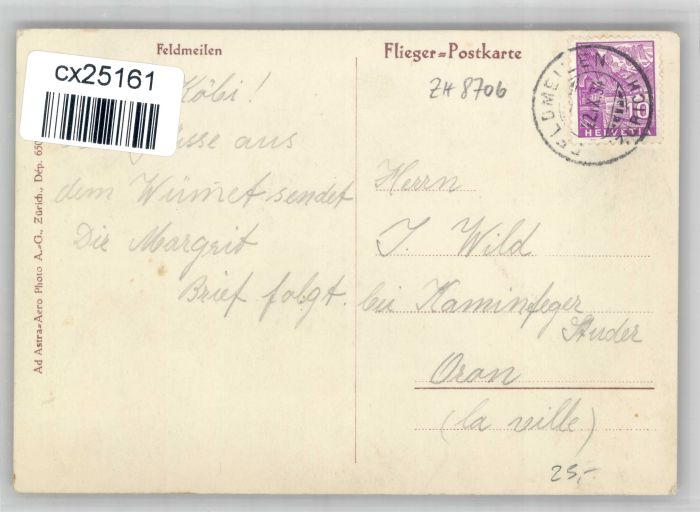 Feldmeilen
Flieger=Postkarte
cx25161
ZH 8706
HELVETIA
Köbi!
aus
dem Wümet sendet
Die Margrit
Brief folgt.
Herrn
J. Wild
bei Kaminfeger
Studer
Oron
(la ville)
25,-
Ad Astra=Aero Photo A.=G., Zürich., Dép. 650